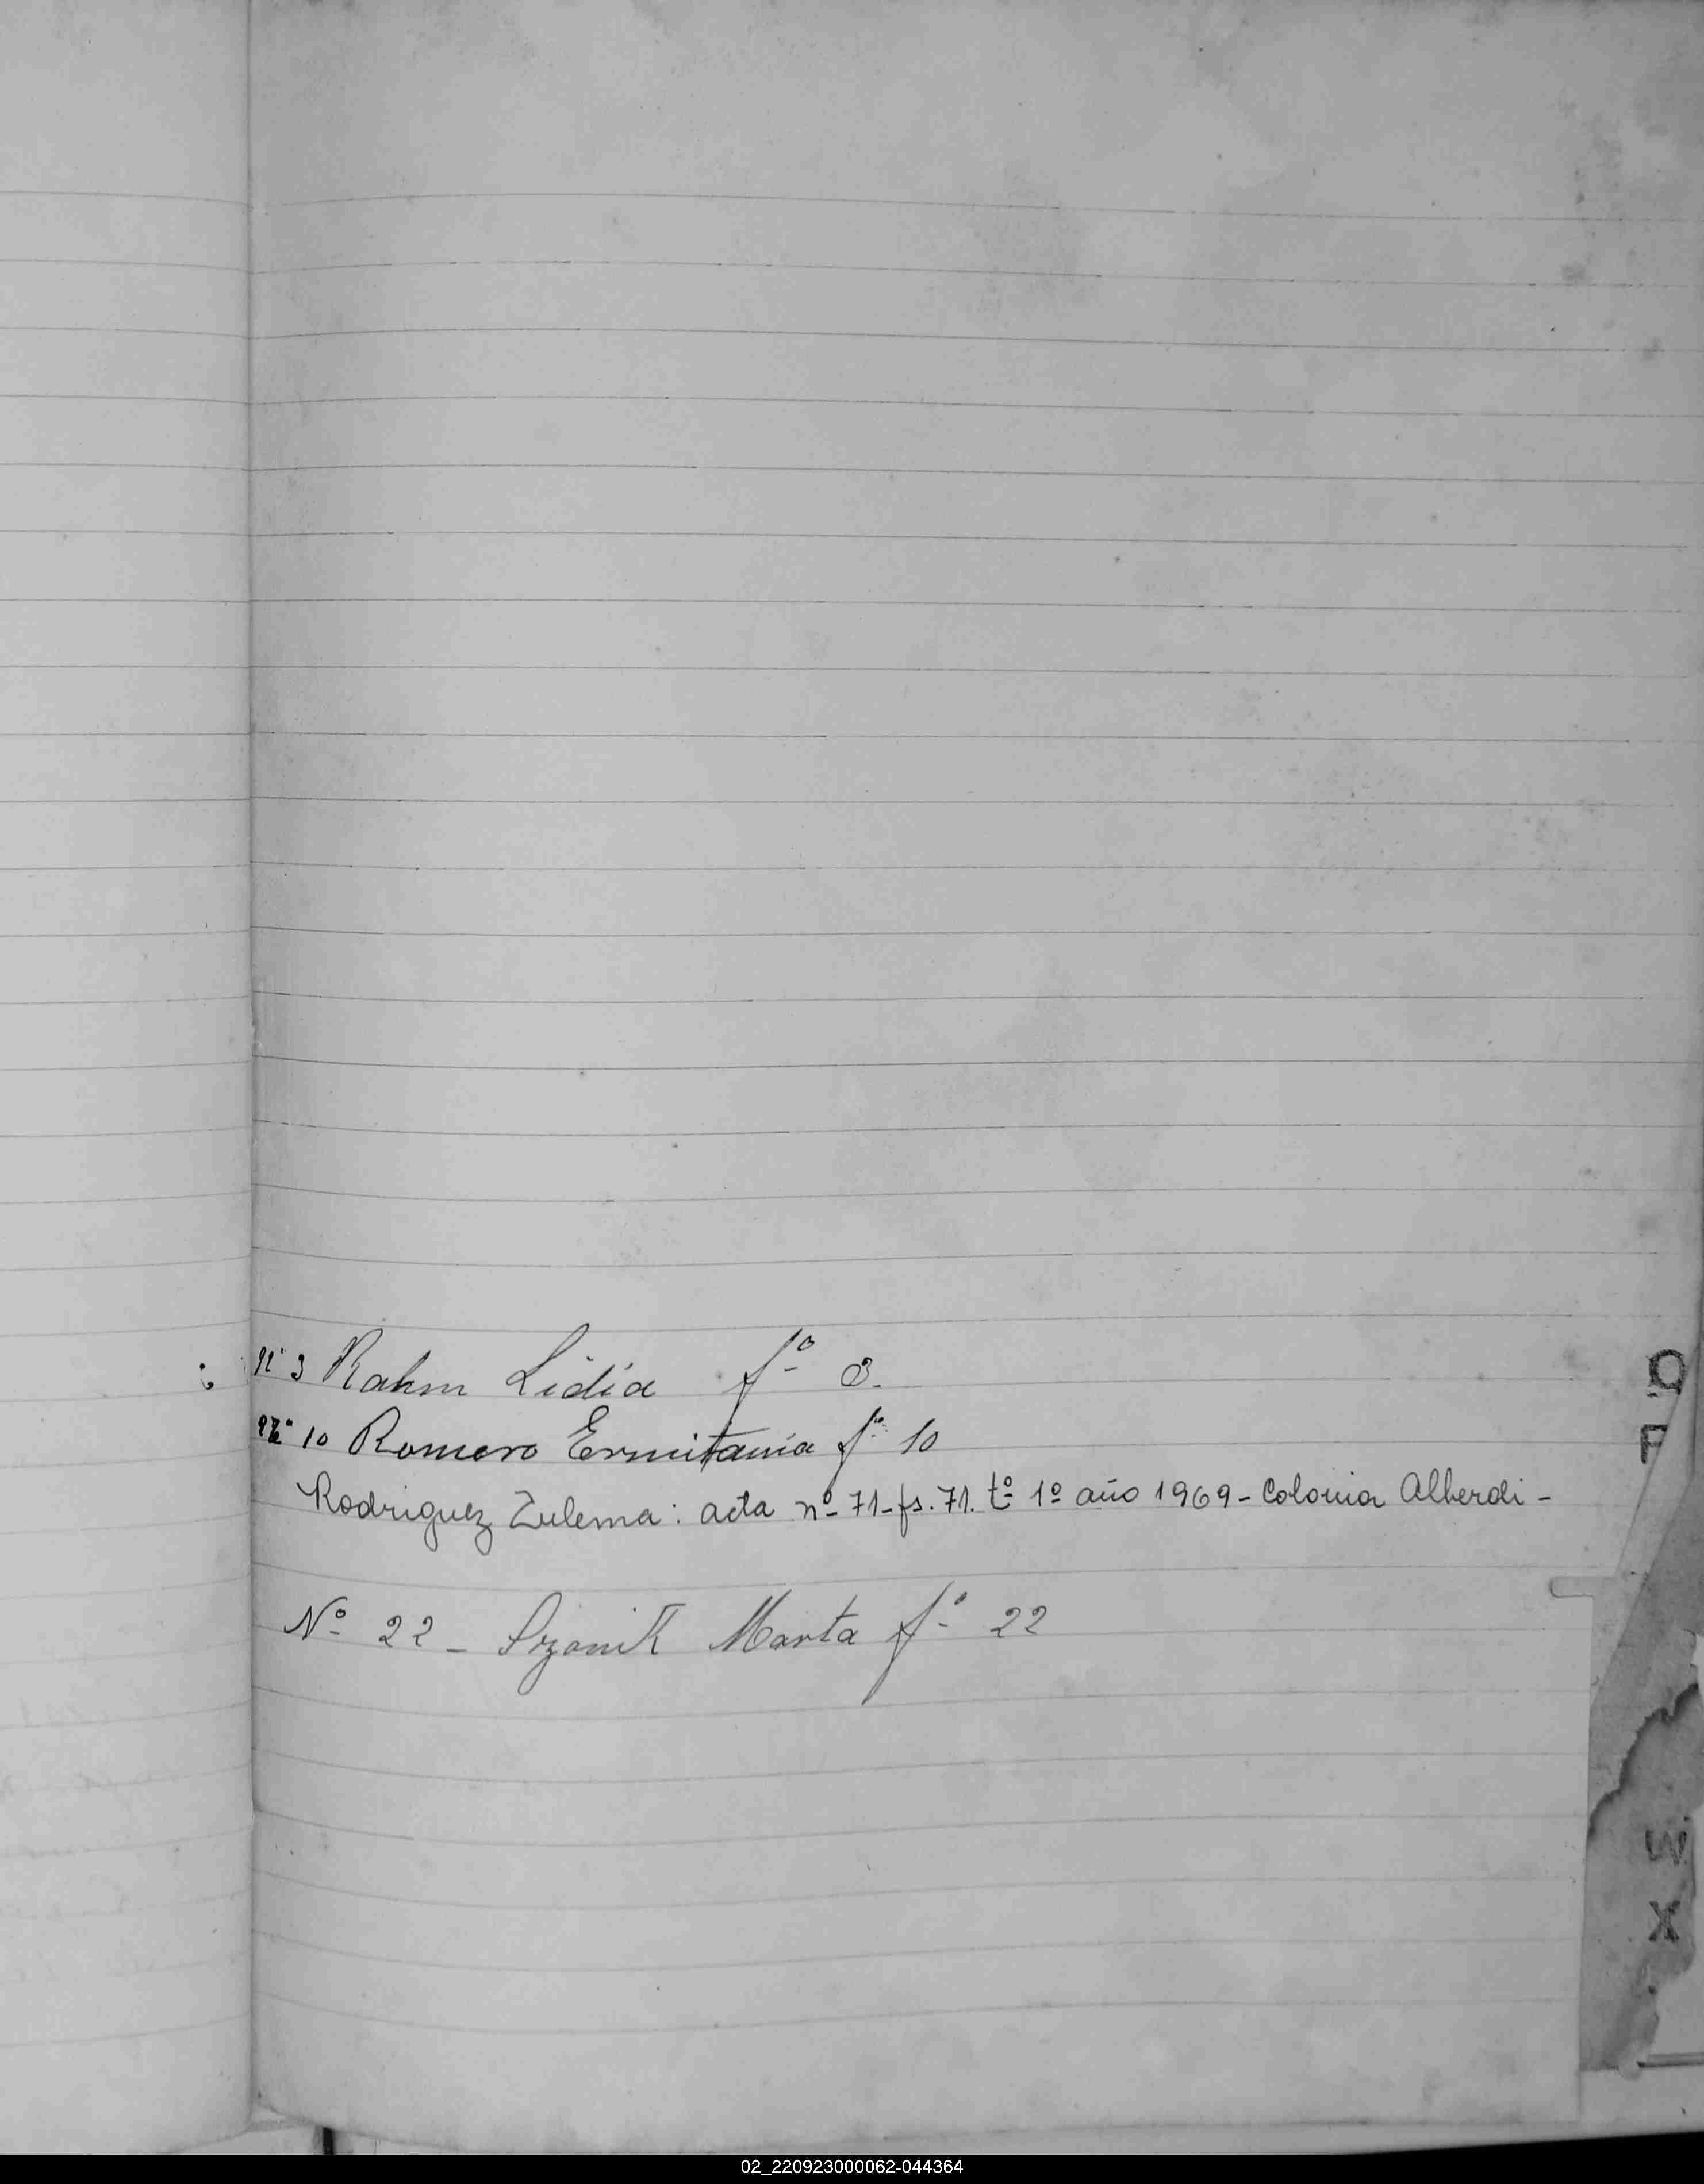 nº 3 Rahm Lidia fº 3.
nº 10 Romero Ermitania fº 10
Rodriguez Zulema: acta nº 71-fs. 71. tº 1º año 1969 - Colonia Alberdi -
Nº 22 - Szanik Marta fº 22
Q
W
X
02_220923000062-044364